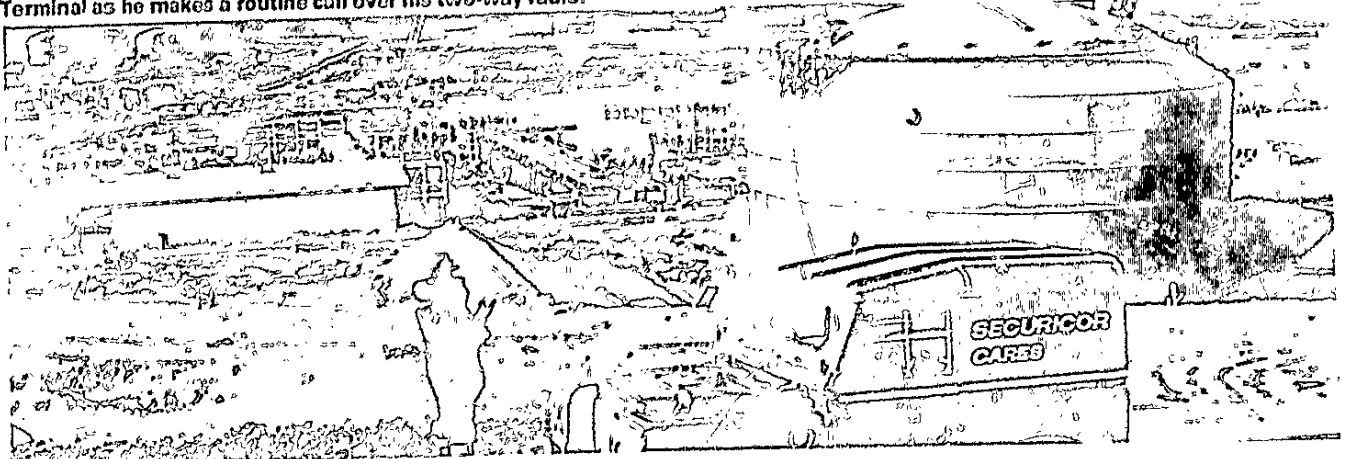 Terminal as he makes a routine call over his two-way radio.
SECURICOR
CARES